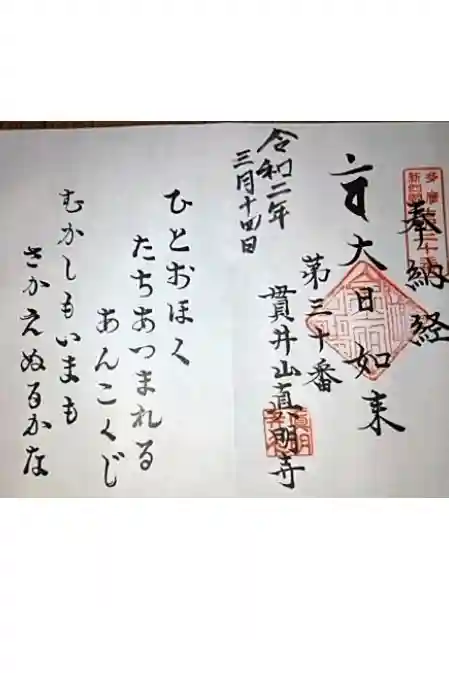 多摩
新四国
奉納経
大日如来
第三十番
貫井山真明寺
令和二年
三月十四日
ひとおほく
たちあつまれる
あんこくじ
むかしもいまも
さかえぬるかな